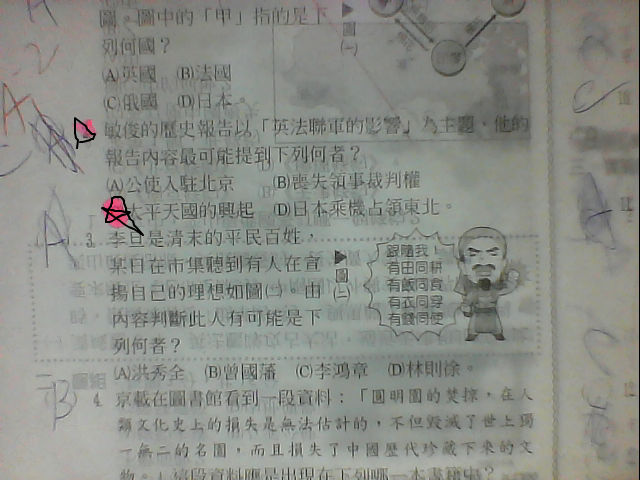 圖。圖中的「甲」指的是下
列何國？
(A)英國 (B)法國
(C)俄國 (D)日本。
敏俊的歷史報告以「英法聯軍的影響」為主題，他的
報告內容最可能提到下列何者？
(A)公使入駐北京 (B)喪失領事裁判權
太平天國的興起 (D)日本乘機占領東北。
3. 李旦是清末的平民百姓，
某日在市集聽到有人在宣
揚自己的理想如圖㈡，由
內容判斷此人有可能是下
列何者？
▶圖㈠
▶圖㈡
跟隨我！
有田同耕
有飯同食
有衣同穿
有錢同使
(A)洪秀全 (B)曾國藩 (C)李鴻章 (D)林則徐。
B
4. 京載在圖書館看到一段資料：「圓明園的焚掠，在人
類文化史上的損失是無法估計的，不但毀滅了世上獨
一無二的名園，而且損失了中國歷代珍藏下來的文
物。」這段資料應是出現在下列哪一本書籍中？